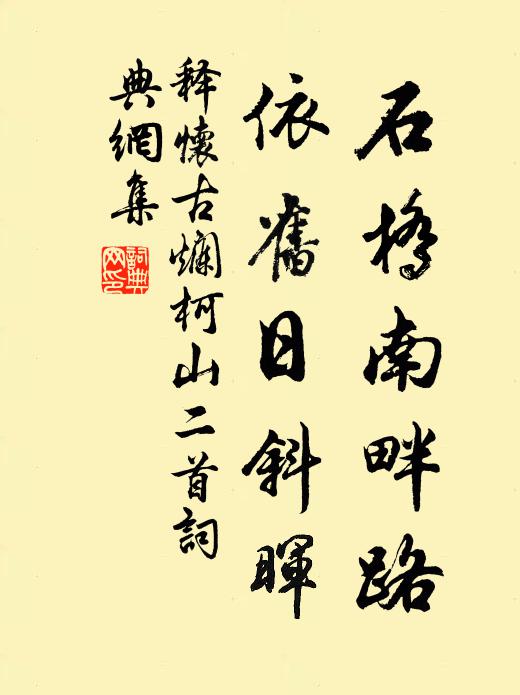 石橋南畔路
依舊日斜暉
释懷古爛柯山二首詞
典網集
詞典
网印